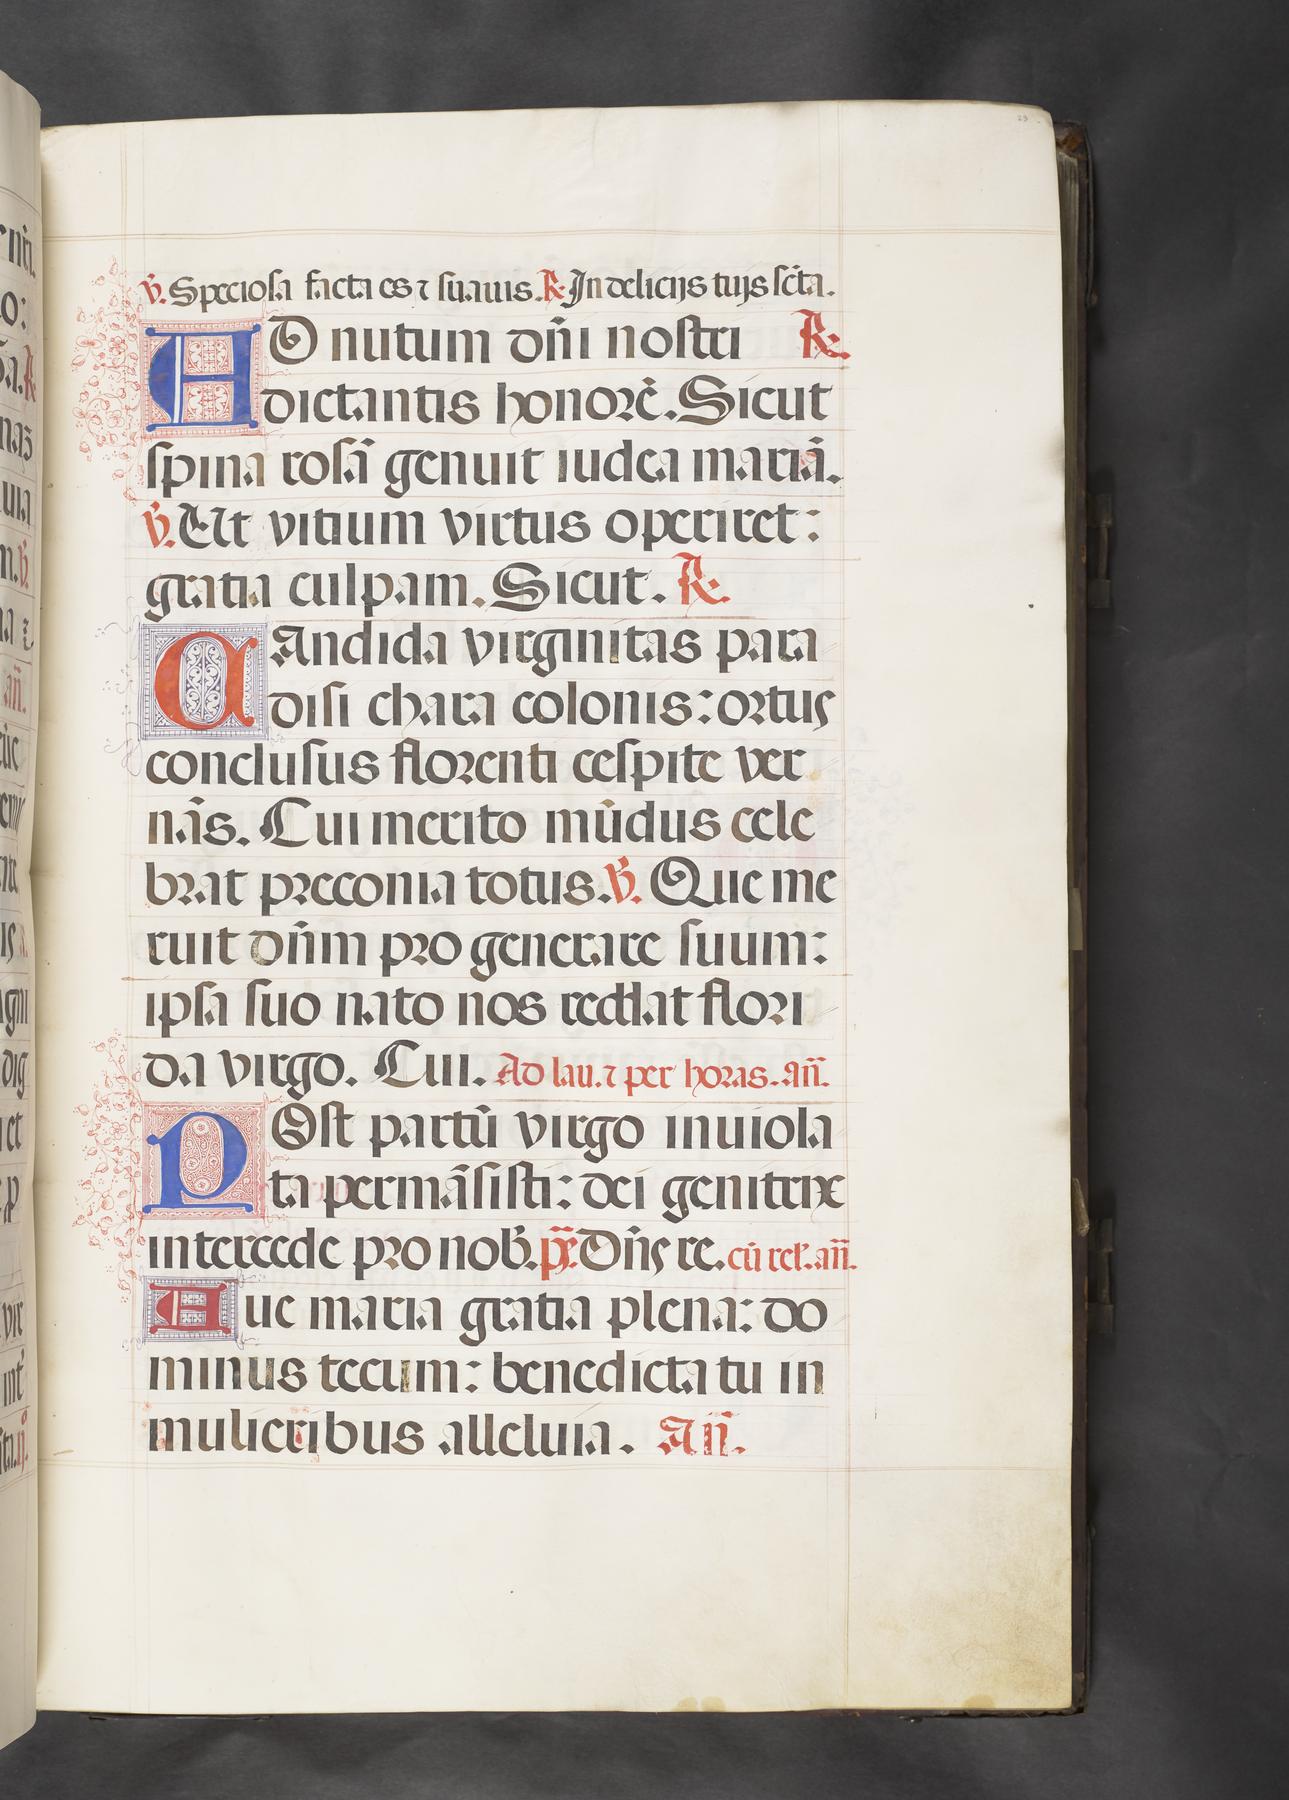 29
℣. Speciosa facta es ⁊ suauis. ℟. In delicijs tuijs sc̄ta.
AD nutum dn̄i nostri ℟.
dictantis honorē. Sicut
spina rosā genuit iudea mariā.
℣. Ut vitium virtus operiret:
gratia culpam. Sicut. ℟.
CAndida virginitas para
disi chara colonis: ortus
conclusus florenti cespite ver
nās. Cui merito mūdus cele
brat preconia totus. ℣. Que me
ruit dn̄m pro generare suum:
ipsa suo nato nos reddat flori
da virgo. Cui. Ad lau. ⁊ per horas. añ.
POst partū virgo inuiola
ta permāsisti: dei genitrix
intercede pro nob̄. p̄s. Dn̄s re. cū rel̄. añ.
Aue maria gratia plena: do
minus tecum: benedicta tu in
mulieribus alleluia. Añ.